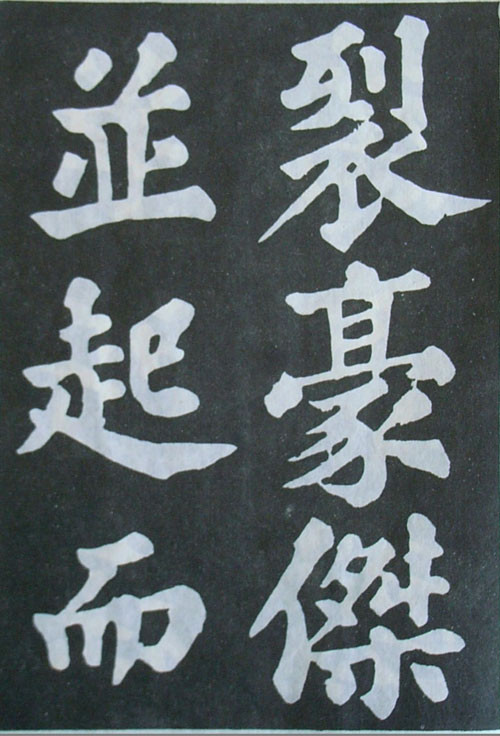 裂豪傑
並起而